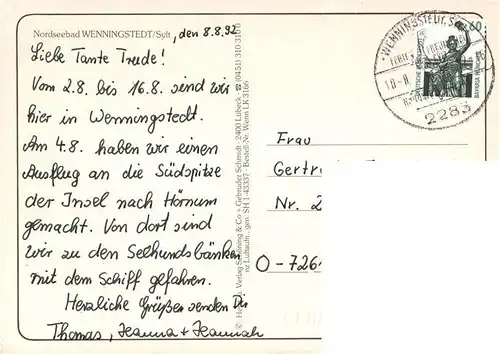 Nordseebad WENNINGSTEDT/Sylt, den 8.8.92
Liebe Tante Trude!
Vom 2.8. bis 16.8. sind wir
hier in Wenningstedt.
Am 4.8. haben wir einen
Ausflug an die Südspitze
der Insel nach Hörnum
gemacht. Von dort sind
wir zu den Seehundsbänken
mit dem Schiff gefahren.
Herzliche Grüßen senden Dir
Thomas, Jeanna + Jeannah
Verlag Schöning & Co + Gebrüder Schmidt · 2400 Lübeck · ☎ (0451) 310 310
Bestell-Nr. Wenn LK 3166
WENNINGSTEDT, S
2283
60
DEUTSCHE BUNDESPOST
BAVARIA MÜNCHEN
Frau
Gertr
Nr. 2
O-726